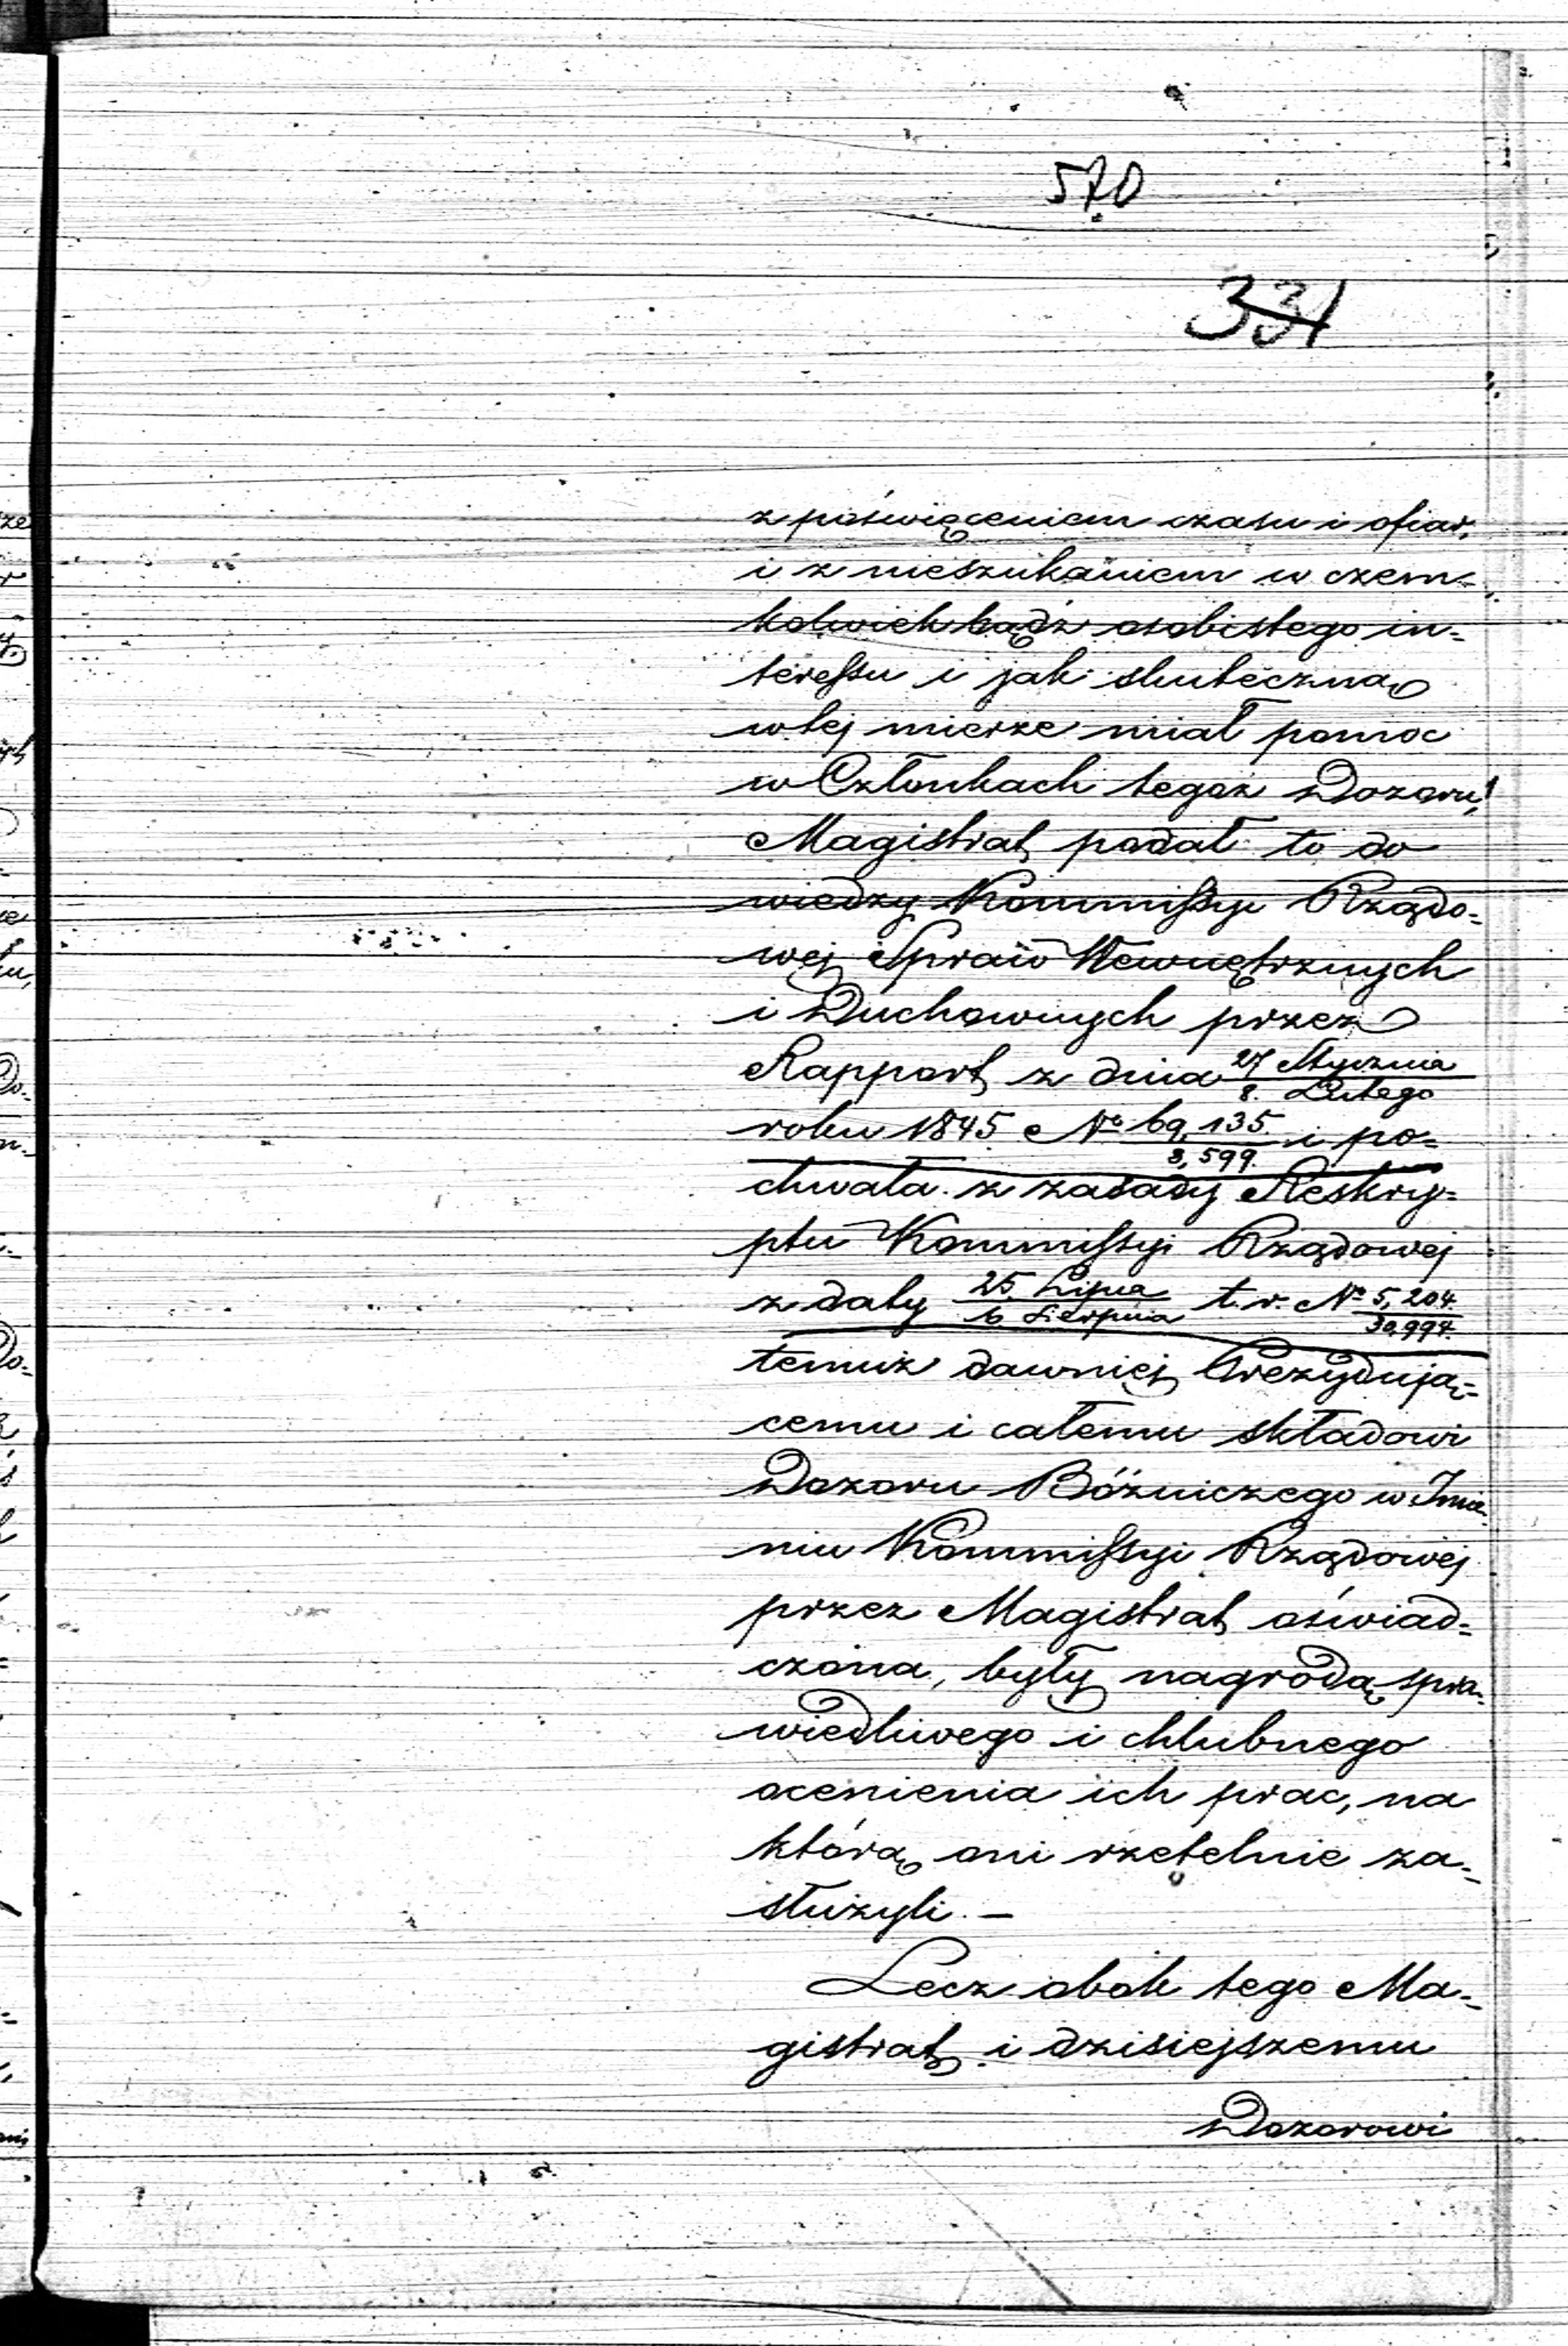 570
331
z poświęceniem czasu i ofiar,
i z nieszukaniem w czem=
kolwiek bądź osobistego in=
teressu i jak skuteczną
w tej mierze miał pomoc
w Członkach tegoż Dozoru,
Magistrat podał to do
wiedzy Kommissyi Rządo=
wej Spraw Wewnętrznych
i Duchownych przez
Rapport z dnia 27 Stycznia / 8. Lutego
roku 1845 No 69,135 / 3,599. i po=
chwała z zasady Reskry=
ptu Kommissyi Rządowej
z daty 25. Lipca / 6 Sierpnia t. r. No 5,204 / 30,994.
temuż dawniej Prezydują=
cemu i całemu składowi
Dozoru Bóźniczego w Imie=
niu Kommissyi Rządowej
przez Magistrat oświad=
czona, były nagrodą spra=
wiedliwego i chlubnego
ocenienia ich prac, na
którą oni rzetelnie za=
służyli. —
Lecz obok tego Ma=
gistrat i dzisiejszemu
Dozorowi